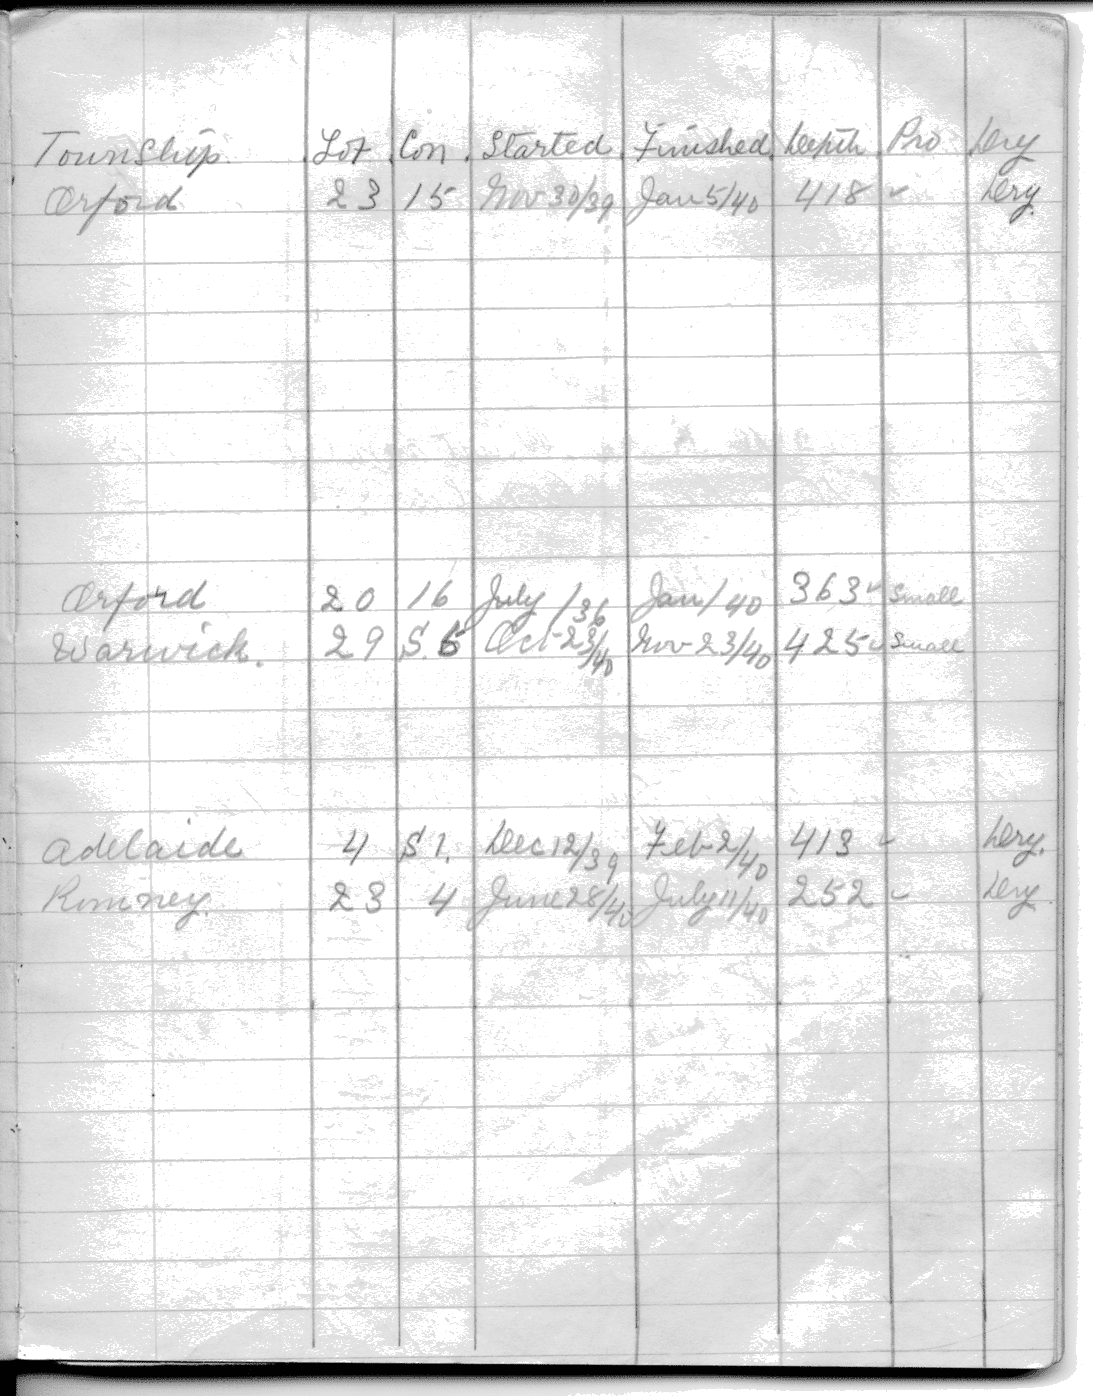 Township. Lot Con. Started Finished Depth Pro Dry
Orford 23 15 Nov 30/39 Jan 5/40 418 ✓ Dry.
Orford 20 16 July /36 Jan / 40 363 ✓ Small
Warwick. 29 S. 6 Oct 23/40 Nov 23/40 425 ✓ Small
Adelaide 4 S 1. Dec 12/39 Feb 2/40 413 ✓ Dry.
Romney. 23 4 June 28/40 July 11/40 252 ✓ Dry